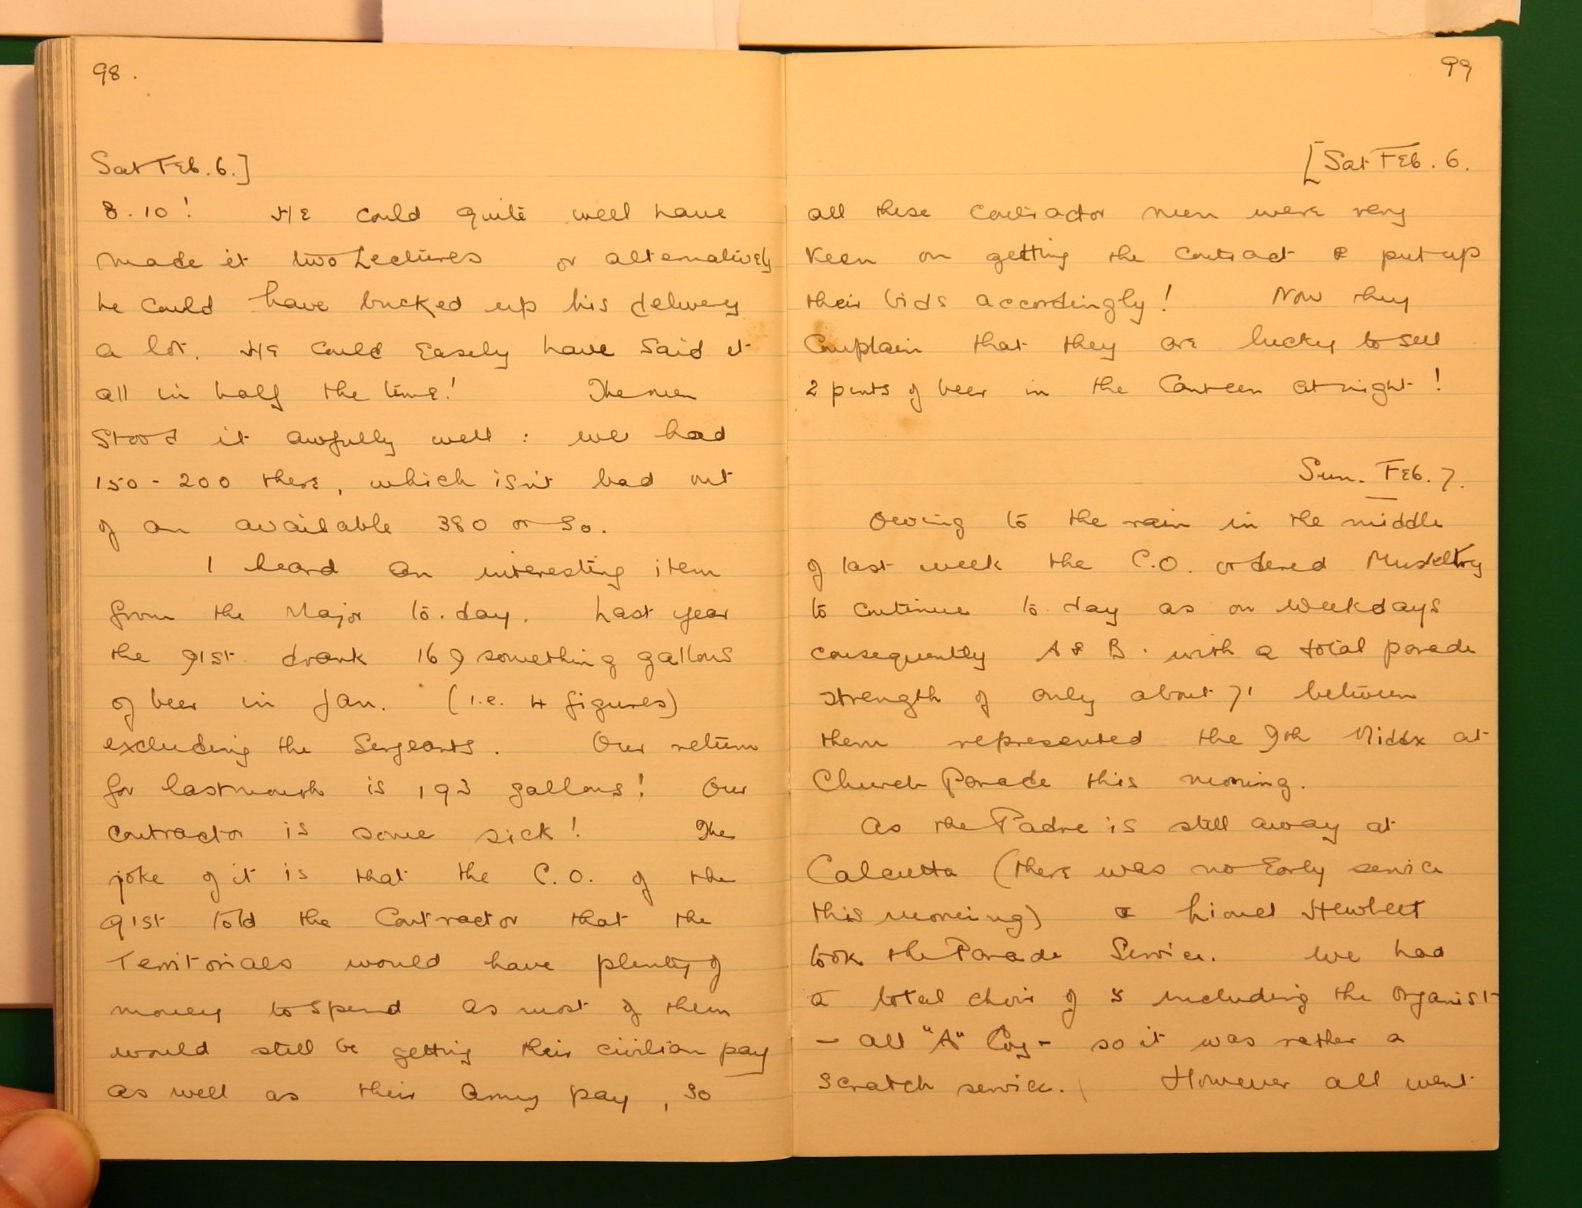 98.
Sat Feb. 6.]
8.10! He could quite well have
made it two Lectures or alternatively
he could have bucked up his delivery
a lot. He could easely have said it
all in half the time! The men
stood it awfully well: we had
150-200 there, which isn't bad out
of an available 380 or so.
I heard an interesting item
from the Major to-day. Last year
the 91st drank 169 something gallons
of beer in Jan. (i.e. 4 figures)
excluding the Sergeants. Our return
for last month is 193 gallons! Our
contractor is some sick! The
joke of it is that the C.O. of the
91st told the Contractor that the
Territorials would have plenty of
money to spend as most of them
would still be getting their civilian pay
as well as their Army pay, so
99
[Sat Feb. 6.
all these contractor men were very
keen on getting the contract & put up
their bids accordingly! Now they
complain that they are lucky to sell
2 pints of beer in the Canteen at night!
Sun. Feb. 7.
Owing to the rain in the middle
of last week the C.O. ordered Musketry
to continue to-day as on weekdays
consequently A & B. with a total parade
strength of only about 71 between
them represented the 9th Middx at
Church Parade this morning.
As the Padre is still away at
Calcutta (there was no Early service
this morning) & Lionel Hewlett
took the Parade Service. We had
a total choir of 8 including the Organist
- all "A" Coy - so it was rather a
scratch service. However all went